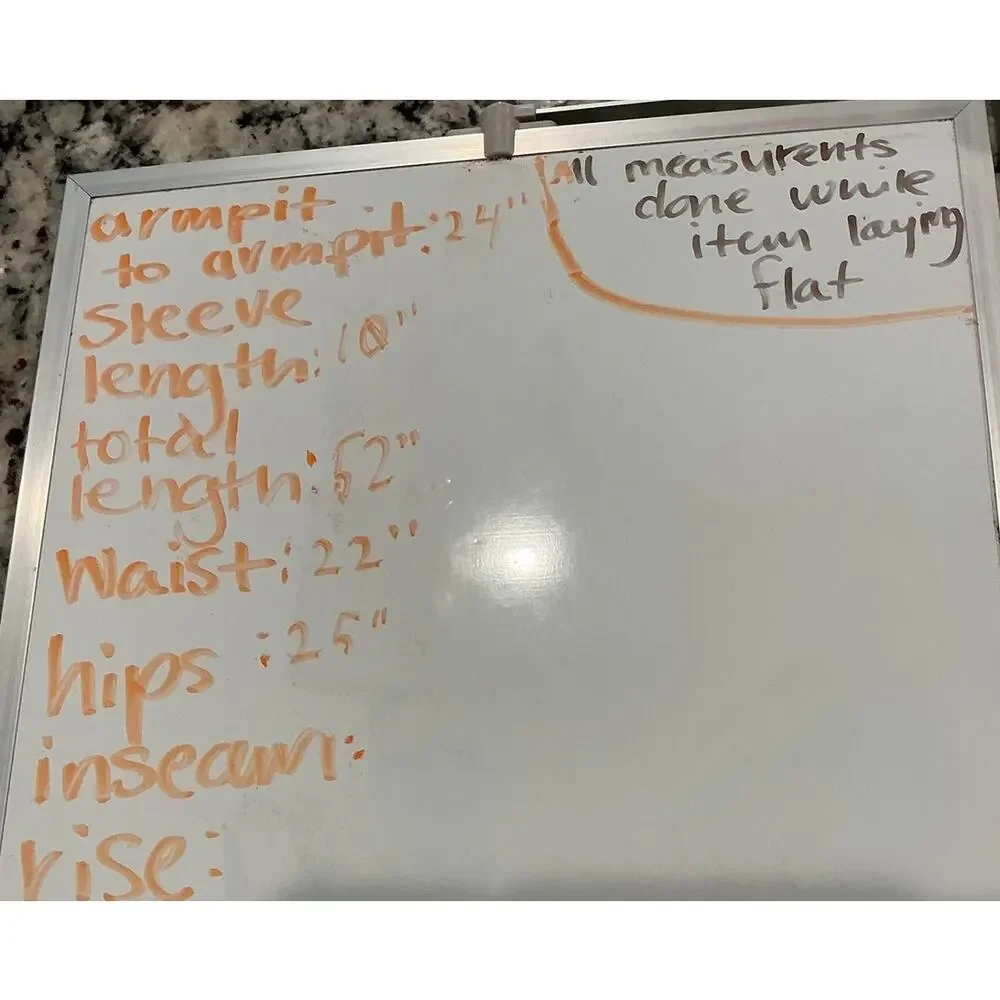 armpit
to armpit: 24"
Sleeve
length: 10"
total
length: 52"
Waist: 22"
hips : 25"
inseam:
rise:
All measurents
done while
item laying
flat